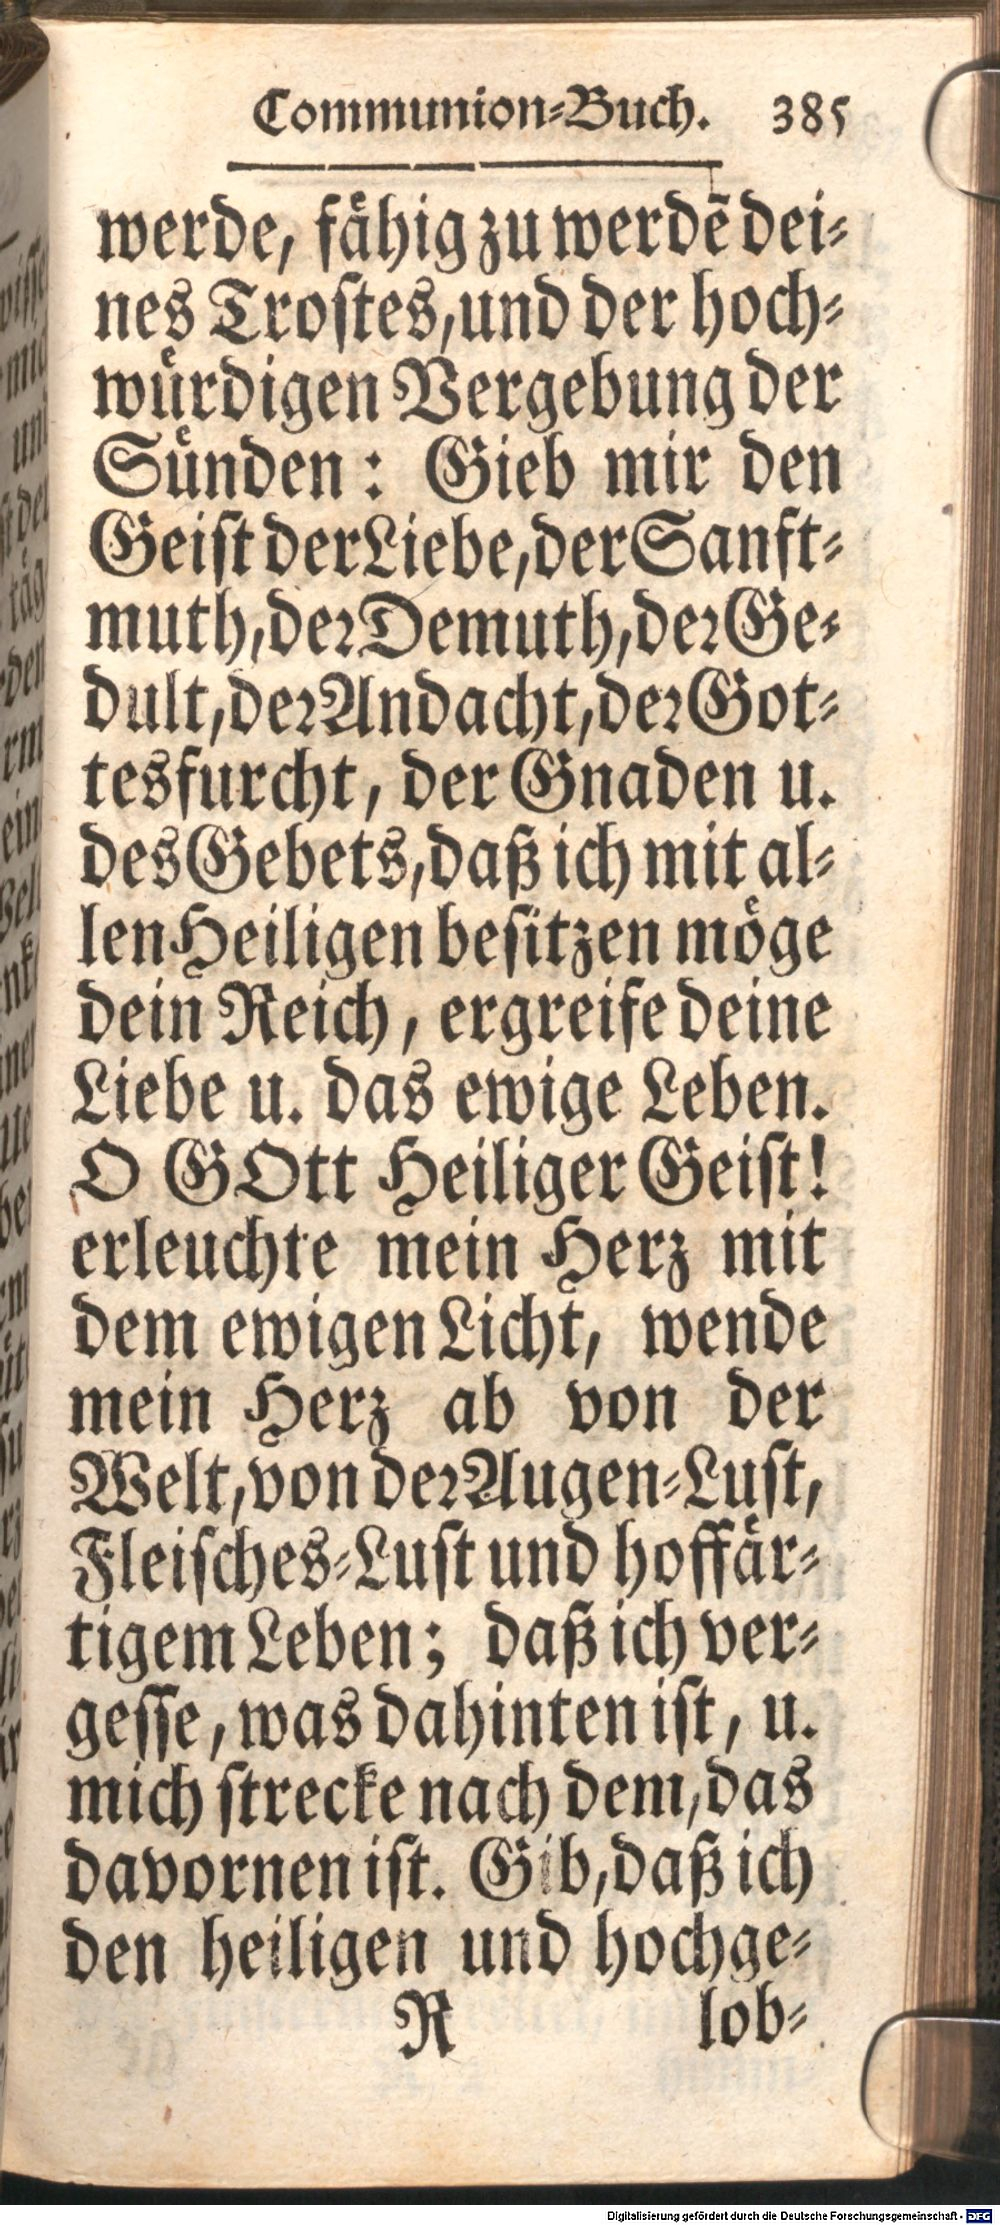 Communion-Buch. 385
werde, fähig zu werdē dei-
nes Trostes, und der hoch-
würdigen Vergebung der
Sünden: Gieb mir den
Geist der Liebe, der Sanft-
muth, der Demuth, der Ge-
dult, der Andacht, der Got-
tesfurcht, der Gnaden u.
des Gebets, daß ich mit al-
len Heiligen besitzen möge
dein Reich, ergreife deine
Liebe u. das ewige Leben.
O GOtt Heiliger Geist!
erleuchte mein Herz mit
dem ewigen Licht, wende
mein Herz ab von der
Welt, von der Augen-Lust,
Fleisches-Lust und hoffär-
tigem Leben; daß ich ver-
gesse, was dahinten ist, u.
mich strecke nach dem, das
davornen ist. Gib, daß ich
den heiligen und hochge-
R lob-
Digitalisierung gefördert durch die Deutsche Forschungsgemeinschaft - DFG